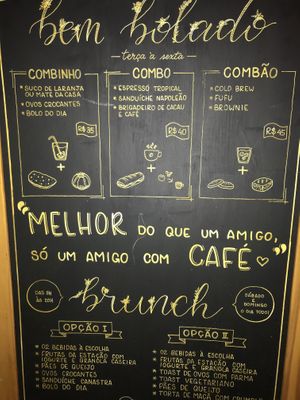 bem bolado
terça à sexta
COMBINHO
SUCO DE LARANJA
OU MATE DA CASA
OVOS CROCANTES
BOLO DO DIA
R$ 35
COMBO
ESPRESSO TROPICAL
SANDUÍCHE NAPOLEÃO
BRIGADEIRO DE CACAU
E CAFÉ
R$ 40
COMBÃO
COLD BREW
FUFU
BROWNIE
R$ 45
"MELHOR DO QUE UM AMIGO,
SÓ UM AMIGO COM CAFÉ"
DAS 9H
ÀS 12H
brunch
SÁBADO
E
DOMINGO
O DIA TODO!
OPÇÃO I
02 BEBIDAS À ESCOLHA
FRUTAS DA ESTAÇÃO COM
IOGURTE E GRANOLA CASEIRA
PÃES DE QUEIJO
OVOS CROCANTES
SANDUÍCHE CANASTRA
BOLO DO DIA
OPÇÃO II
02 BEBIDAS À ESCOLHA
FRUTAS DA ESTAÇÃO COM
IOGURTE E GRANOLA CASEIRA
TOAST DE OVOS COM PARMA
TOAST VEGETARIANO
PÃES DE QUEIJO
TORTA DE MAÇÃ COM CRUMBLE